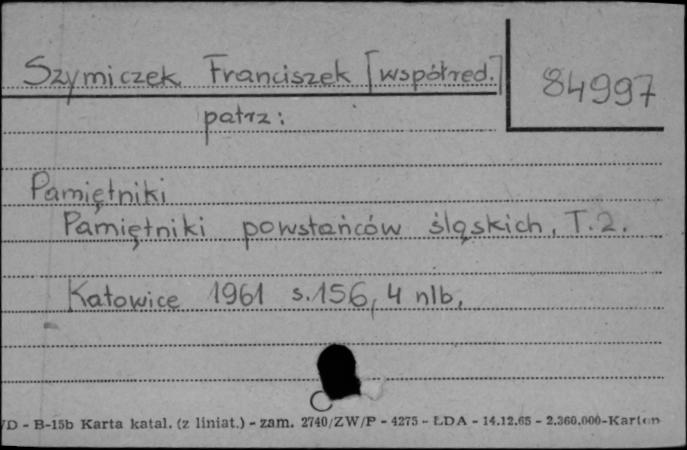 Szymiczek Franciszek [współred.]
84997
patrz:
Pamiętniki
Pamiętniki powstańców śląskich, T.2.
Katowice 1961 s.156, 4 nlb,
/D - B-15b Karta katal. (z liniat.) - zam. 2740/ZW/P - 4275 - ŁDA - 14.12.65 - 2.360.000-Karton